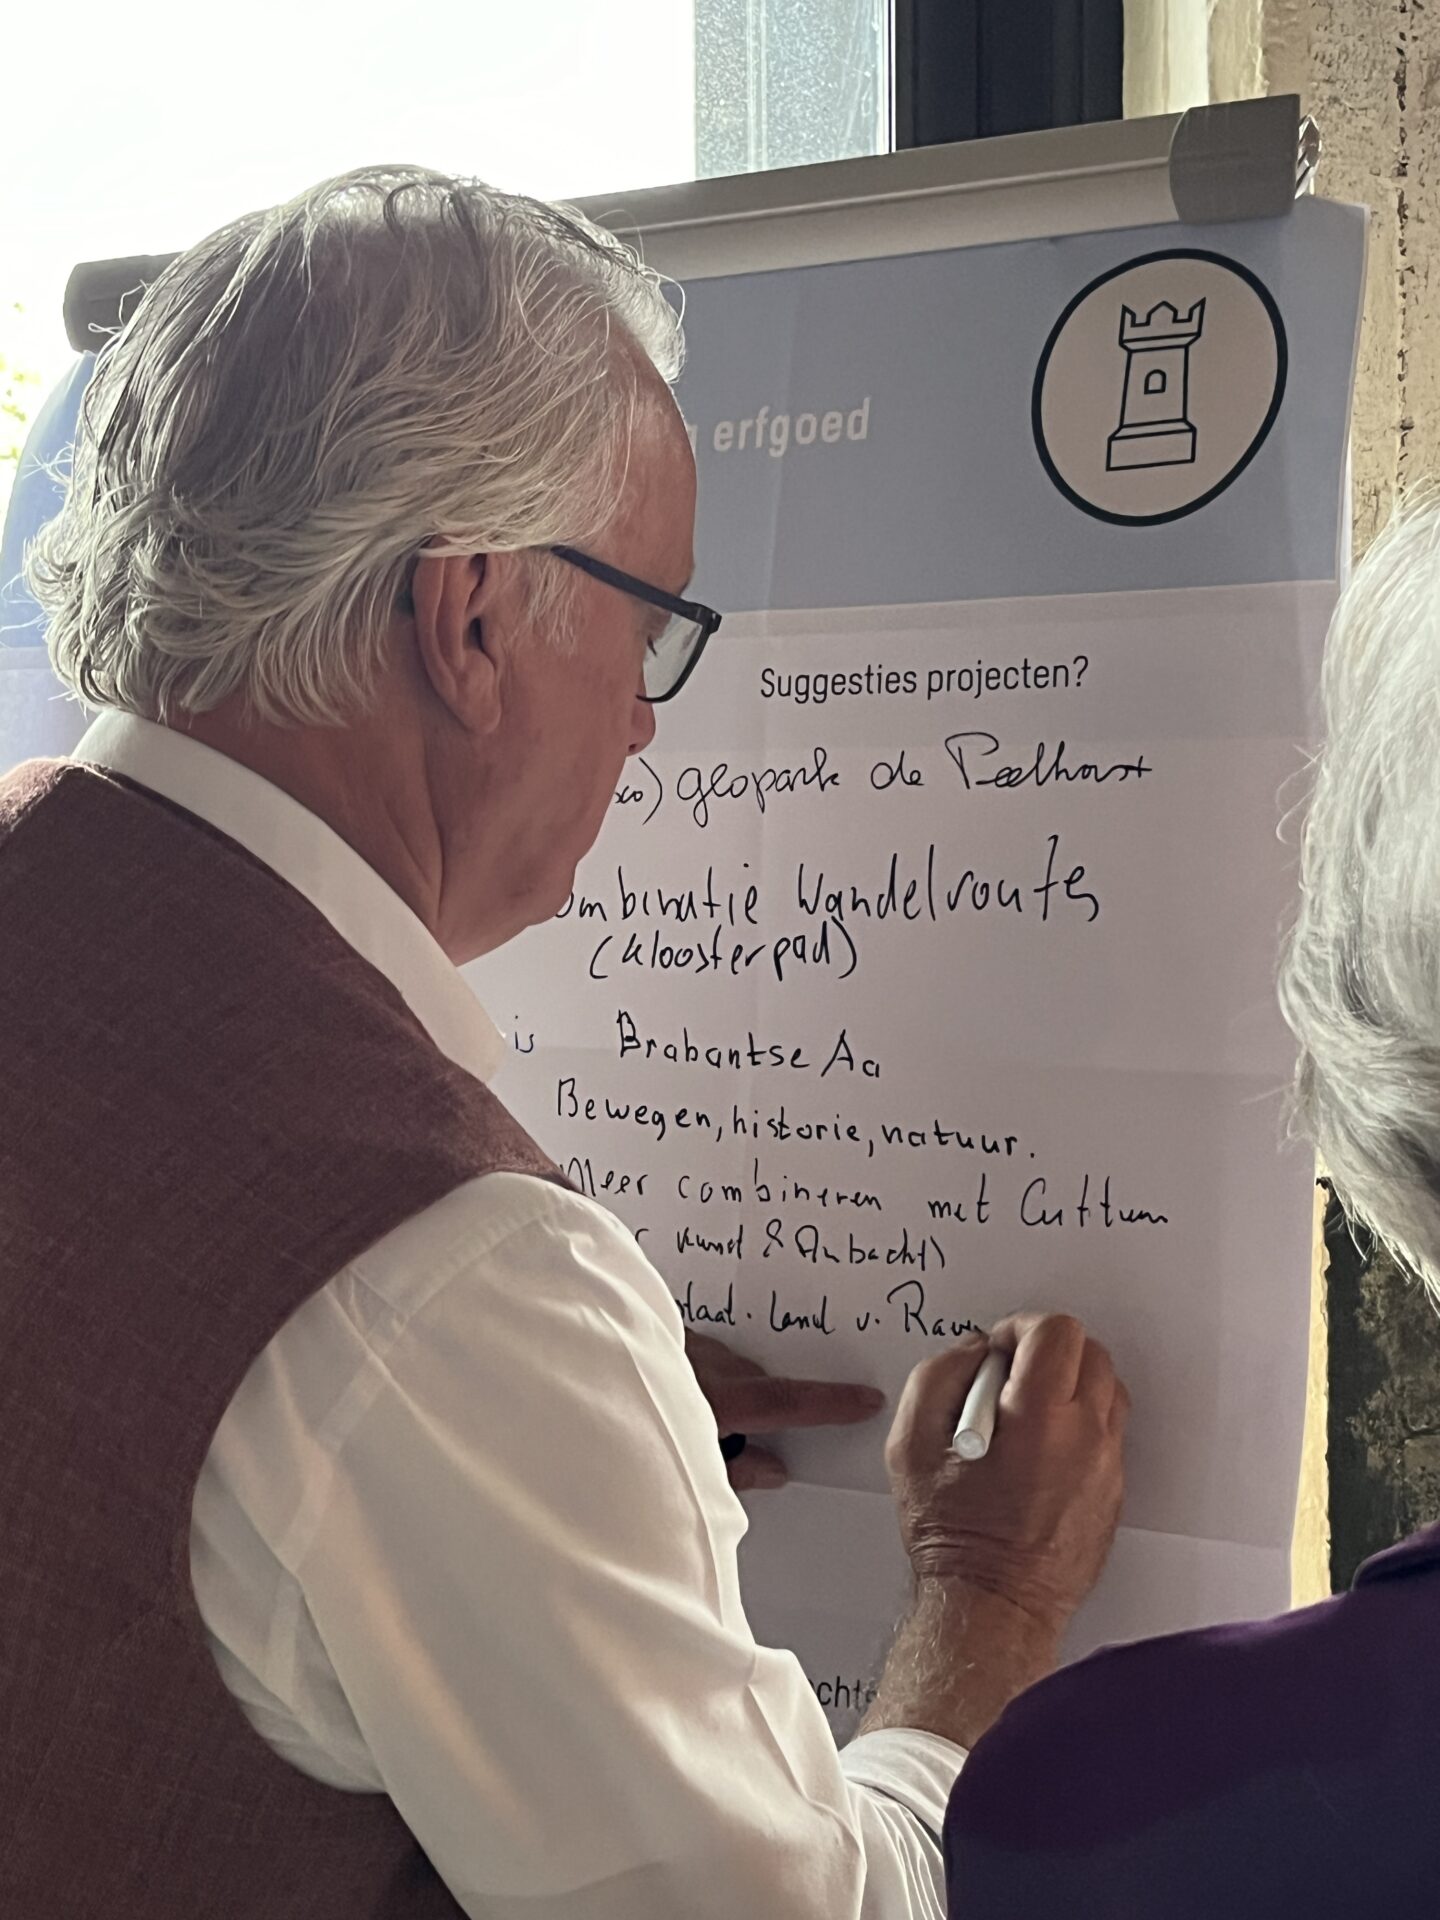 erfgoed
Suggesties projecten?
geopark de Peelhorst
ombinatie Wandelroutes
(Kloosterpad)
is Brabantse Aa
Bewegen, historie, natuur.
Meer combineren met
staat. Land v. Rav